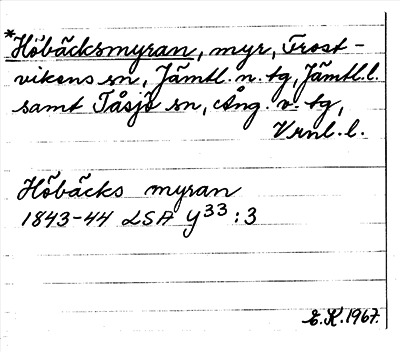 *Höbäcksmyran, myr, Frost-
vikens sn, Jämtl. n. tg, Jämtl. l.
samt Tåsjö sn, Ång. v. tg,
Vrnl. l.
Höbäcks myran
1843-44 LSA Y33:3
E.K. 1967.